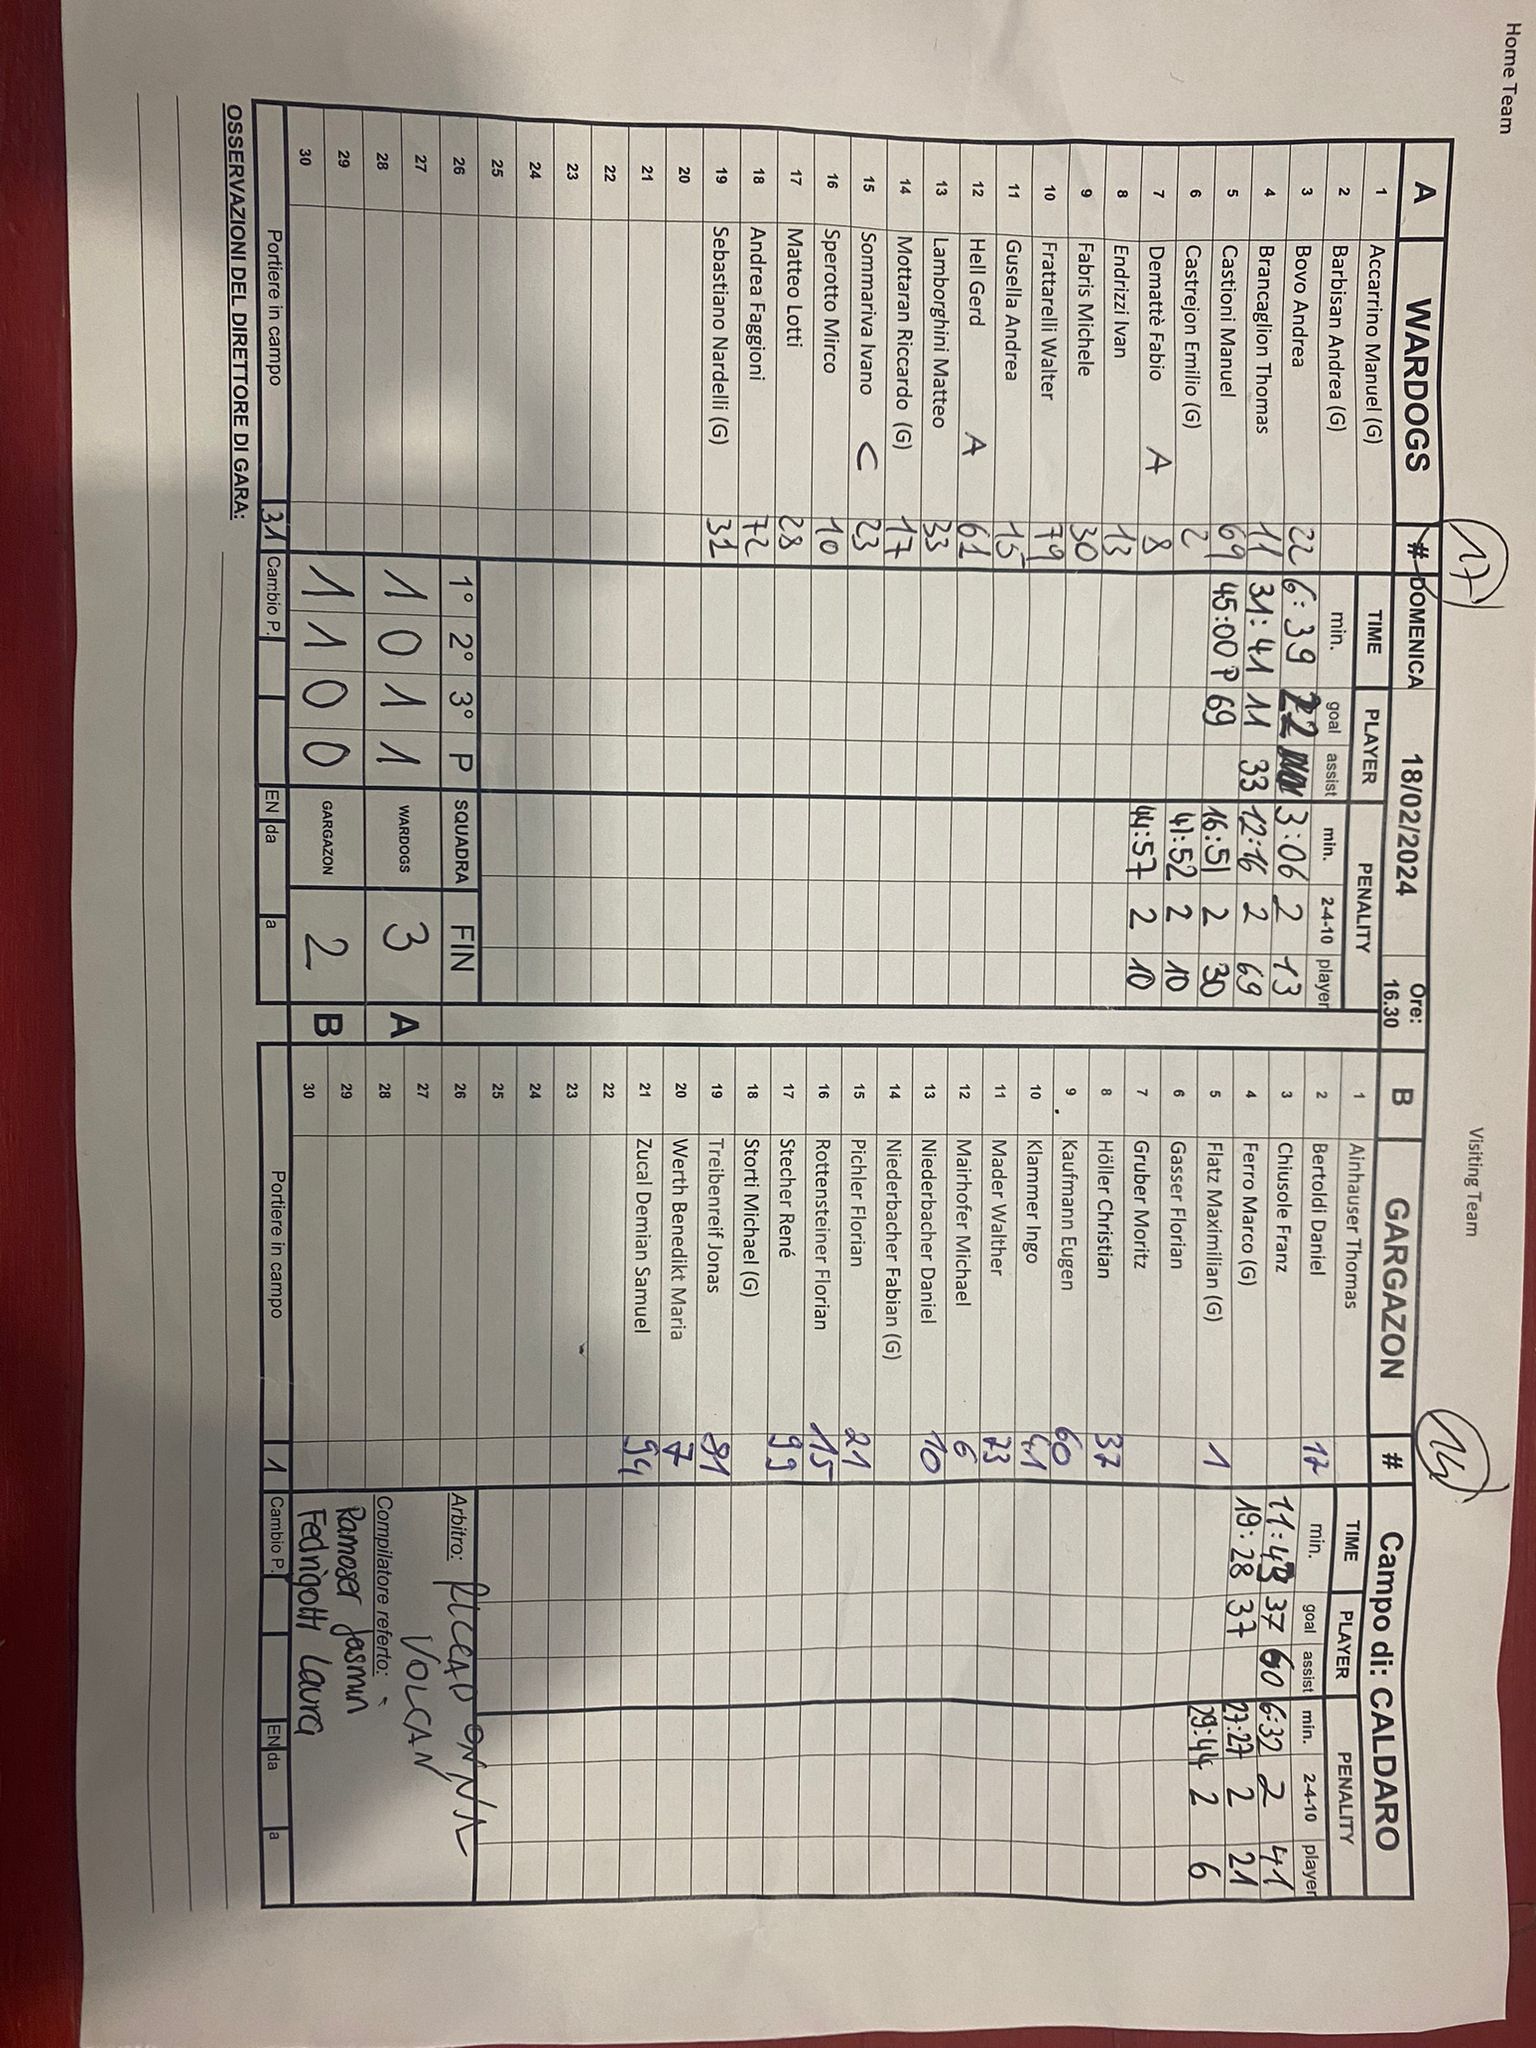 Home Team
Visiting Team
17
14
A WARDOGS # DOMENICA 18/02/2024 Ore: 16.30
TIME PLAYER PENALITY
min. goal assist min. 2-4-10 player
1 Accarrino Manuel (G)
2 Barbisan Andrea (G)
3 Bovo Andrea 22 6:39 22 3:06 2 13
4 Brancaglion Thomas 11 31:41 11 33 12:16 2 69
5 Castioni Manuel 69 45:00 P 69 16:51 2 30
6 Castrejon Emilio (G) 2 41:52 2 10
7 Demattè Fabio A 8 44:57 2 10
8 Endrizzi Ivan 13
9 Fabris Michele 30
10 Frattarelli Walter 79
11 Gusella Andrea 15
12 Hell Gerd A 61
13 Lamborghini Matteo 33
14 Mottaran Riccardo (G) 17
15 Sommariva Ivano C 23
16 Sperotto Mirco 10
17 Matteo Lotti 28
18 Andrea Faggioni 72
19 Sebastiano Nardelli (G) 31
20
21
22
23
24
25
26 1° 2° 3° P SQUADRA FIN
27
28 1 0 1 1 WARDOGS 3 A
29
30 1 1 0 0 GARGAZON 2 B
Portiere in campo 31 Cambio P. EN da a
B GARGAZON # Campo di: CALDARO
TIME PLAYER PENALITY
min. goal assist min. 2-4-10 player
1 Ainhauser Thomas
2 Bertoldi Daniel 17
3 Chiusole Franz 11:43 37 60 6:32 2 41
4 Ferro Marco (G) 19:28 37 27:27 2 21
5 Flatz Maximilian (G) 1 29:44 2 6
6 Gasser Florian
7 Gruber Moritz
8 Höller Christian 37
9 Kaufmann Eugen 60
10 Klammer Ingo 41
11 Mader Walther 23
12 Mairhofer Michael 6
13 Niederbacher Daniel 10
14 Niederbacher Fabian (G)
15 Pichler Florian 21
16 Rottensteiner Florian 15
17 Stecher René 99
18 Storti Michael (G)
19 Treibenreif Jonas 81
20 Werth Benedikt Maria 7
21 Zucal Demian Samuel 94
22
23
24
25
26 Arbitro:
27 VOLCAN
28 Compilatore referto:
29 Ramoser Jasmin
30 Fedrigotti Laura
Portiere in campo 1 Cambio P. EN da a
OSSERVAZIONI DEL DIRETTORE DI GARA: